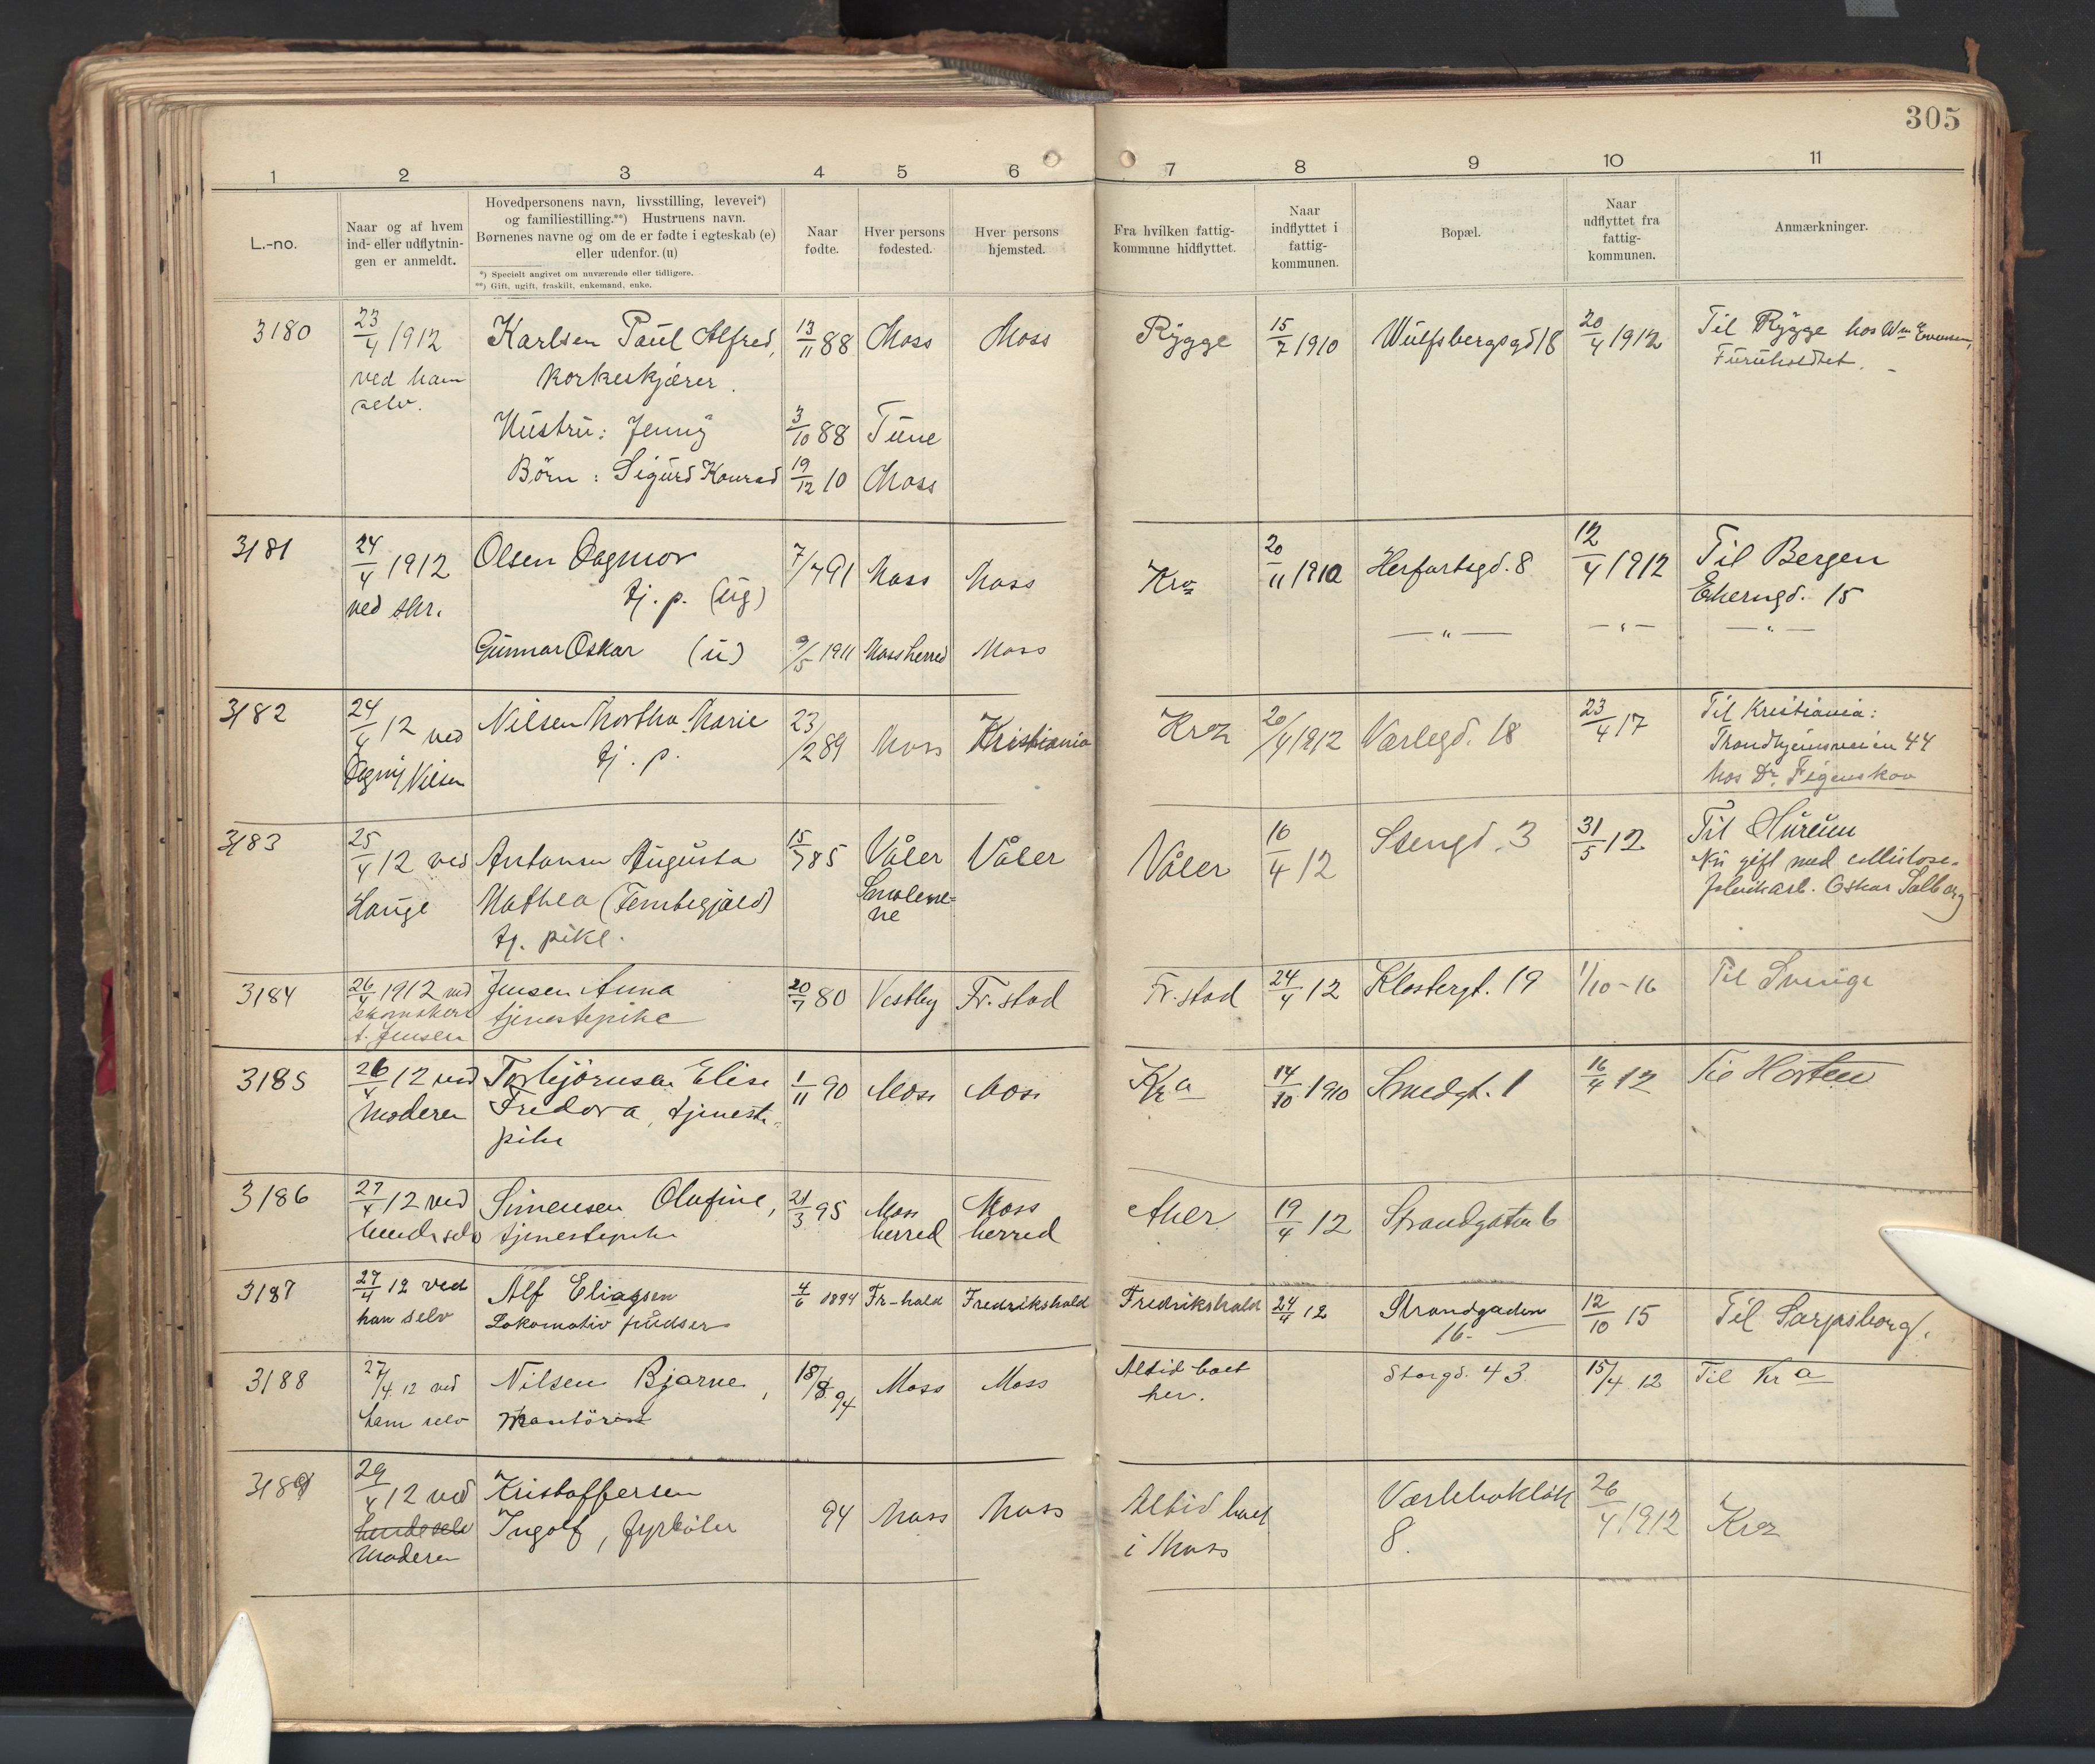 305
1 2 3 4 5 6 7 8 9 10 11
L.-no.
Naar og af hvem
ind- eller udflytnin-
gen er anmeldt.
Hovedpersonens navn, livsstilling, levevei*)
og familiestilling.**) Hustruens navn.
Børnenes navne og om de er fødte i egteskab (e)
eller udenfor. (u)
*) Specielt angivet om nuværende eller tidligere.
**) Gift, ugift, fraskilt, enkemand, enke.
Naar
fødte.
Hver persons
fødested.
Hver persons
hjemsted.
Fra hvilken fattig-
kommune hidflyttet.
Naar
indflyttet i
fattig-
kommunen.
Bopæl.
Naar
udflyttet fra
fattig-
kommunen.
Anmærkninger.
3180 23/4 1912 Karlsen Paul Alfred, 13/11 88 Moss Moss Rygge 15/7 1910 Wulfsbergsgd 18 20/4 1912 Til Rygge hos Wm Evensen,
ved ham korkeskjærer. Furuholdtet.
selv.
Hustru: Jenny 3/10 88 Tune
Børn: Sigurd Konrad 19/12 10 Moss
3181 24/4 1912 Olsen Dagmar 7/7 91 Moss Moss Kra 20/11 1910 Herfortsgd. 8 12/4 1912 Til Bergen
ved skr. tj. p. (ug) Ekerngd. 15
Gunnar Oskar (u) 9/5 1911 Moss herred Moss — " — — " — — " —
3182 24/4 12 ved Nilsen Martha Marie 23/2 89 Moss Kristiania Kra 20/4 1912 Varlegd. 18 23/4 17 Til Kristiania:
Dagny Nilsen tj. p. Trondhjemsveien 44
hos Dr. Figenskov
3183 25/4 12 ved Antonsen Augusta 15/7 85 Våler Våler Våler 16/4 12 Stengd. 3 31/5 12 Til Hurum
Hauge Mathea (Tembegjæld) Smolene- Nu gift med cellulose-
tj. pike. ne fabrikarb. Oskar Solberg
3184 26/4 1912 ved Jensen Anna 20/7 80 Vestby Fr.stad Fr.stad 24/4 12 Klostergt. 19 1/10 - 16 Til Sverige
skomaker tjenestepike
A. Jensen
3185 26/4 12 ved Torbjørnsen Elise 1/11 90 Moss Moss Kra 14/10 1910 Smedgt. 1 16/4 12 Til Horten
Moderen Fredora, tjeneste-
pike
3186 27/4 12 ved Simensen Olufine, 21/3 95 Moss Moss Aker 19/4 12 Strandgaten 6
hende selv tjenestepike herred herred
3187 27/4 12 ved Alf Eliassen 4/6 1894 Fr-hald Fredrikshald Fredrikshald 24/4 12 Strandgaden 12/10 15 Til Sarpsborg.
han selv Lokomotiv pudser 16.
3188 27/4 12 ved Nilsen Bjarne, 18/8 94 Moss Moss Altid boet Storgd. 43 15/4 12 Til Kra
ham selv Montörist her.
3189 29/4 12 ved Kristoffersen 94 Moss Moss Altid boet Værlebakløk 26/4 1912 Kra
hende selv Ingolf, fyrböter i Moss 8.
Moderen